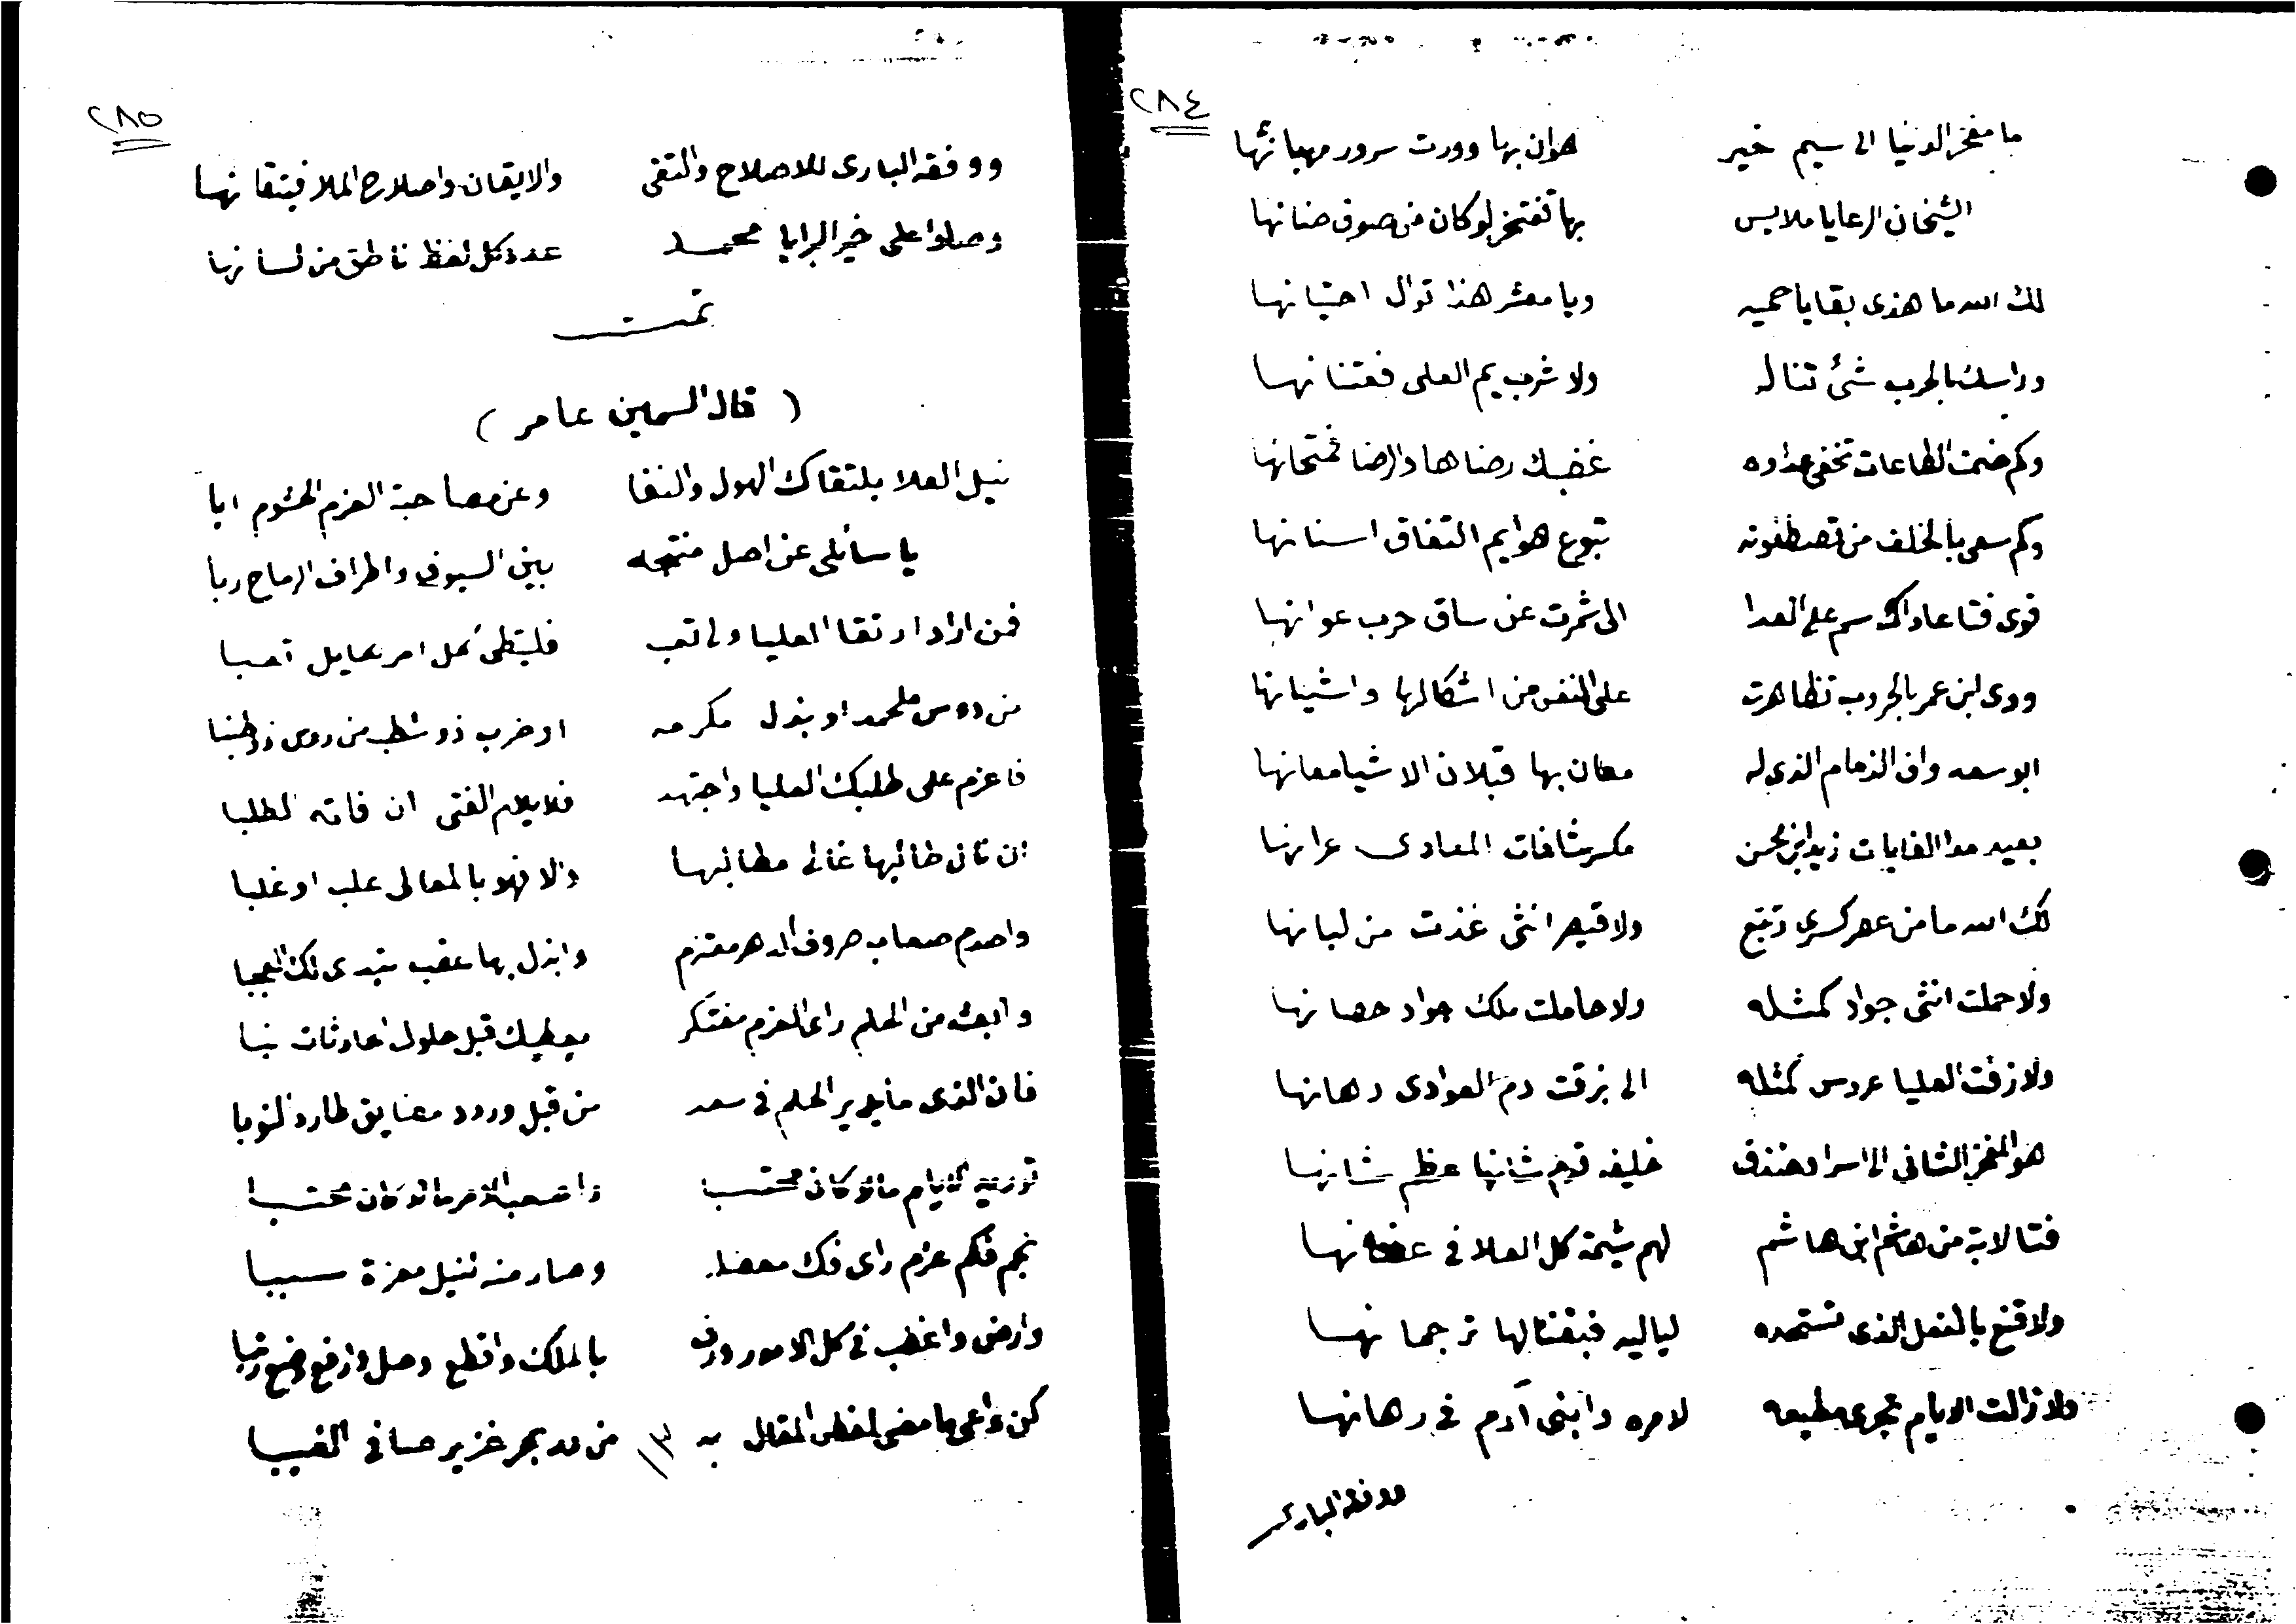 ٢٨٤
ما مفخر الدنيا الى سيم خير هوان بها وورت سرور مهبانها
الشيخان الرعايا ملايس بها تفتخر لو كان من صوف ضنانها
لك الله ما هذى بقايا حميه ويا معشر هذا توال احتيانها
وراسك بالحرب شئ تناله ولا شرب يم العلى فعتنانها
وكم ضمت الطاعات تخفى عداوه غضبك رضاها والرضا
وكم سعى بالخلف من تصطفونه هوايم التفاق اسنانها
قوى فتا عاداك سم على العدا الى شمرت عن ساق حرب عوانها
وودى لبن عمر بالحروب تظاهرت على النفس من اشكالها واشيانها
ابو سعد واف الذمام الذى له معان بها قبلان الاشيا معانها
بعيد مدا الغايات زيد ابن محسن مكسر شافات المعادى عرانها
لك الله ما من عصر كسرى وتبع ولا قيصر انثى غذت من لبانها
ولا حملت انثى جواد كمثله ولا حاملت ملك جواد حصانها
ولا زفت العليا عروس كمثله الى بزقت دم العوادى دهانها
هو المفخر الثانى الى اسرا خليفه شانها عظم شانها
فتا لابة من هاشم ابن هاشم لهم شيمة كل العلا فى
ولا قنع بالفعل الذى تستمده لياليه فبقتالها ترجمانها
ولا زالت الايام تجرى مطيعه لامره وابنى آدم فى رهانها
ووفقه البارى
٢٨٥
ووفقه البارى للاصلاح والتقى والايقان واصلاح الملا فيتقانها
وصلوا على خير البرايا محمد عدد كل لفظ ناطق من لسانها
تمت
( قال السمين عامر )
نيل العلا بلتقاك الهول والنقا وعن مصاحبة العزم الحشوم ابا
يا سائلى عن اصل منتجه بين السيوف واطراف الرماح ربا
فمن اراد ارتقا العليا ولا تعب فليتطى كل امر بمايل تعبا
من دوس ملحمه او بذل مكرمه او ضرب ذو شطب من روس ذو طنبا
فاعزم على طلبك العليا واجتهد فلا يلام الفتى ان فاته لطلبا
ان نال طالبها غالى مطالبها والا فهو بالمعالى علب او غلبا
واصدم صعاب صروف الدهر معتزم وابذل بها عقب تبدى لك العجبا
وابعث من الحلم راى العزم مفتكر يعطيك قبل حلول الحادثات نبا
فان الذى ما يدير الحلم فى سعد من قبل ورود مضايق طارد النوبا
الايام ما لو كان محتسبا واصعب الامر ما لو كان محتسبا
نجم فكم عزم راى فك معضله وصار منه لنيل معزة سببا
وارض واغضب فى كل الامور ورف بالملك واقطع وصل وارفع وضع رتبا
كن واعى ما مضى لفظى المقال به ١٣ من مد بحر غزير صافى الغببا